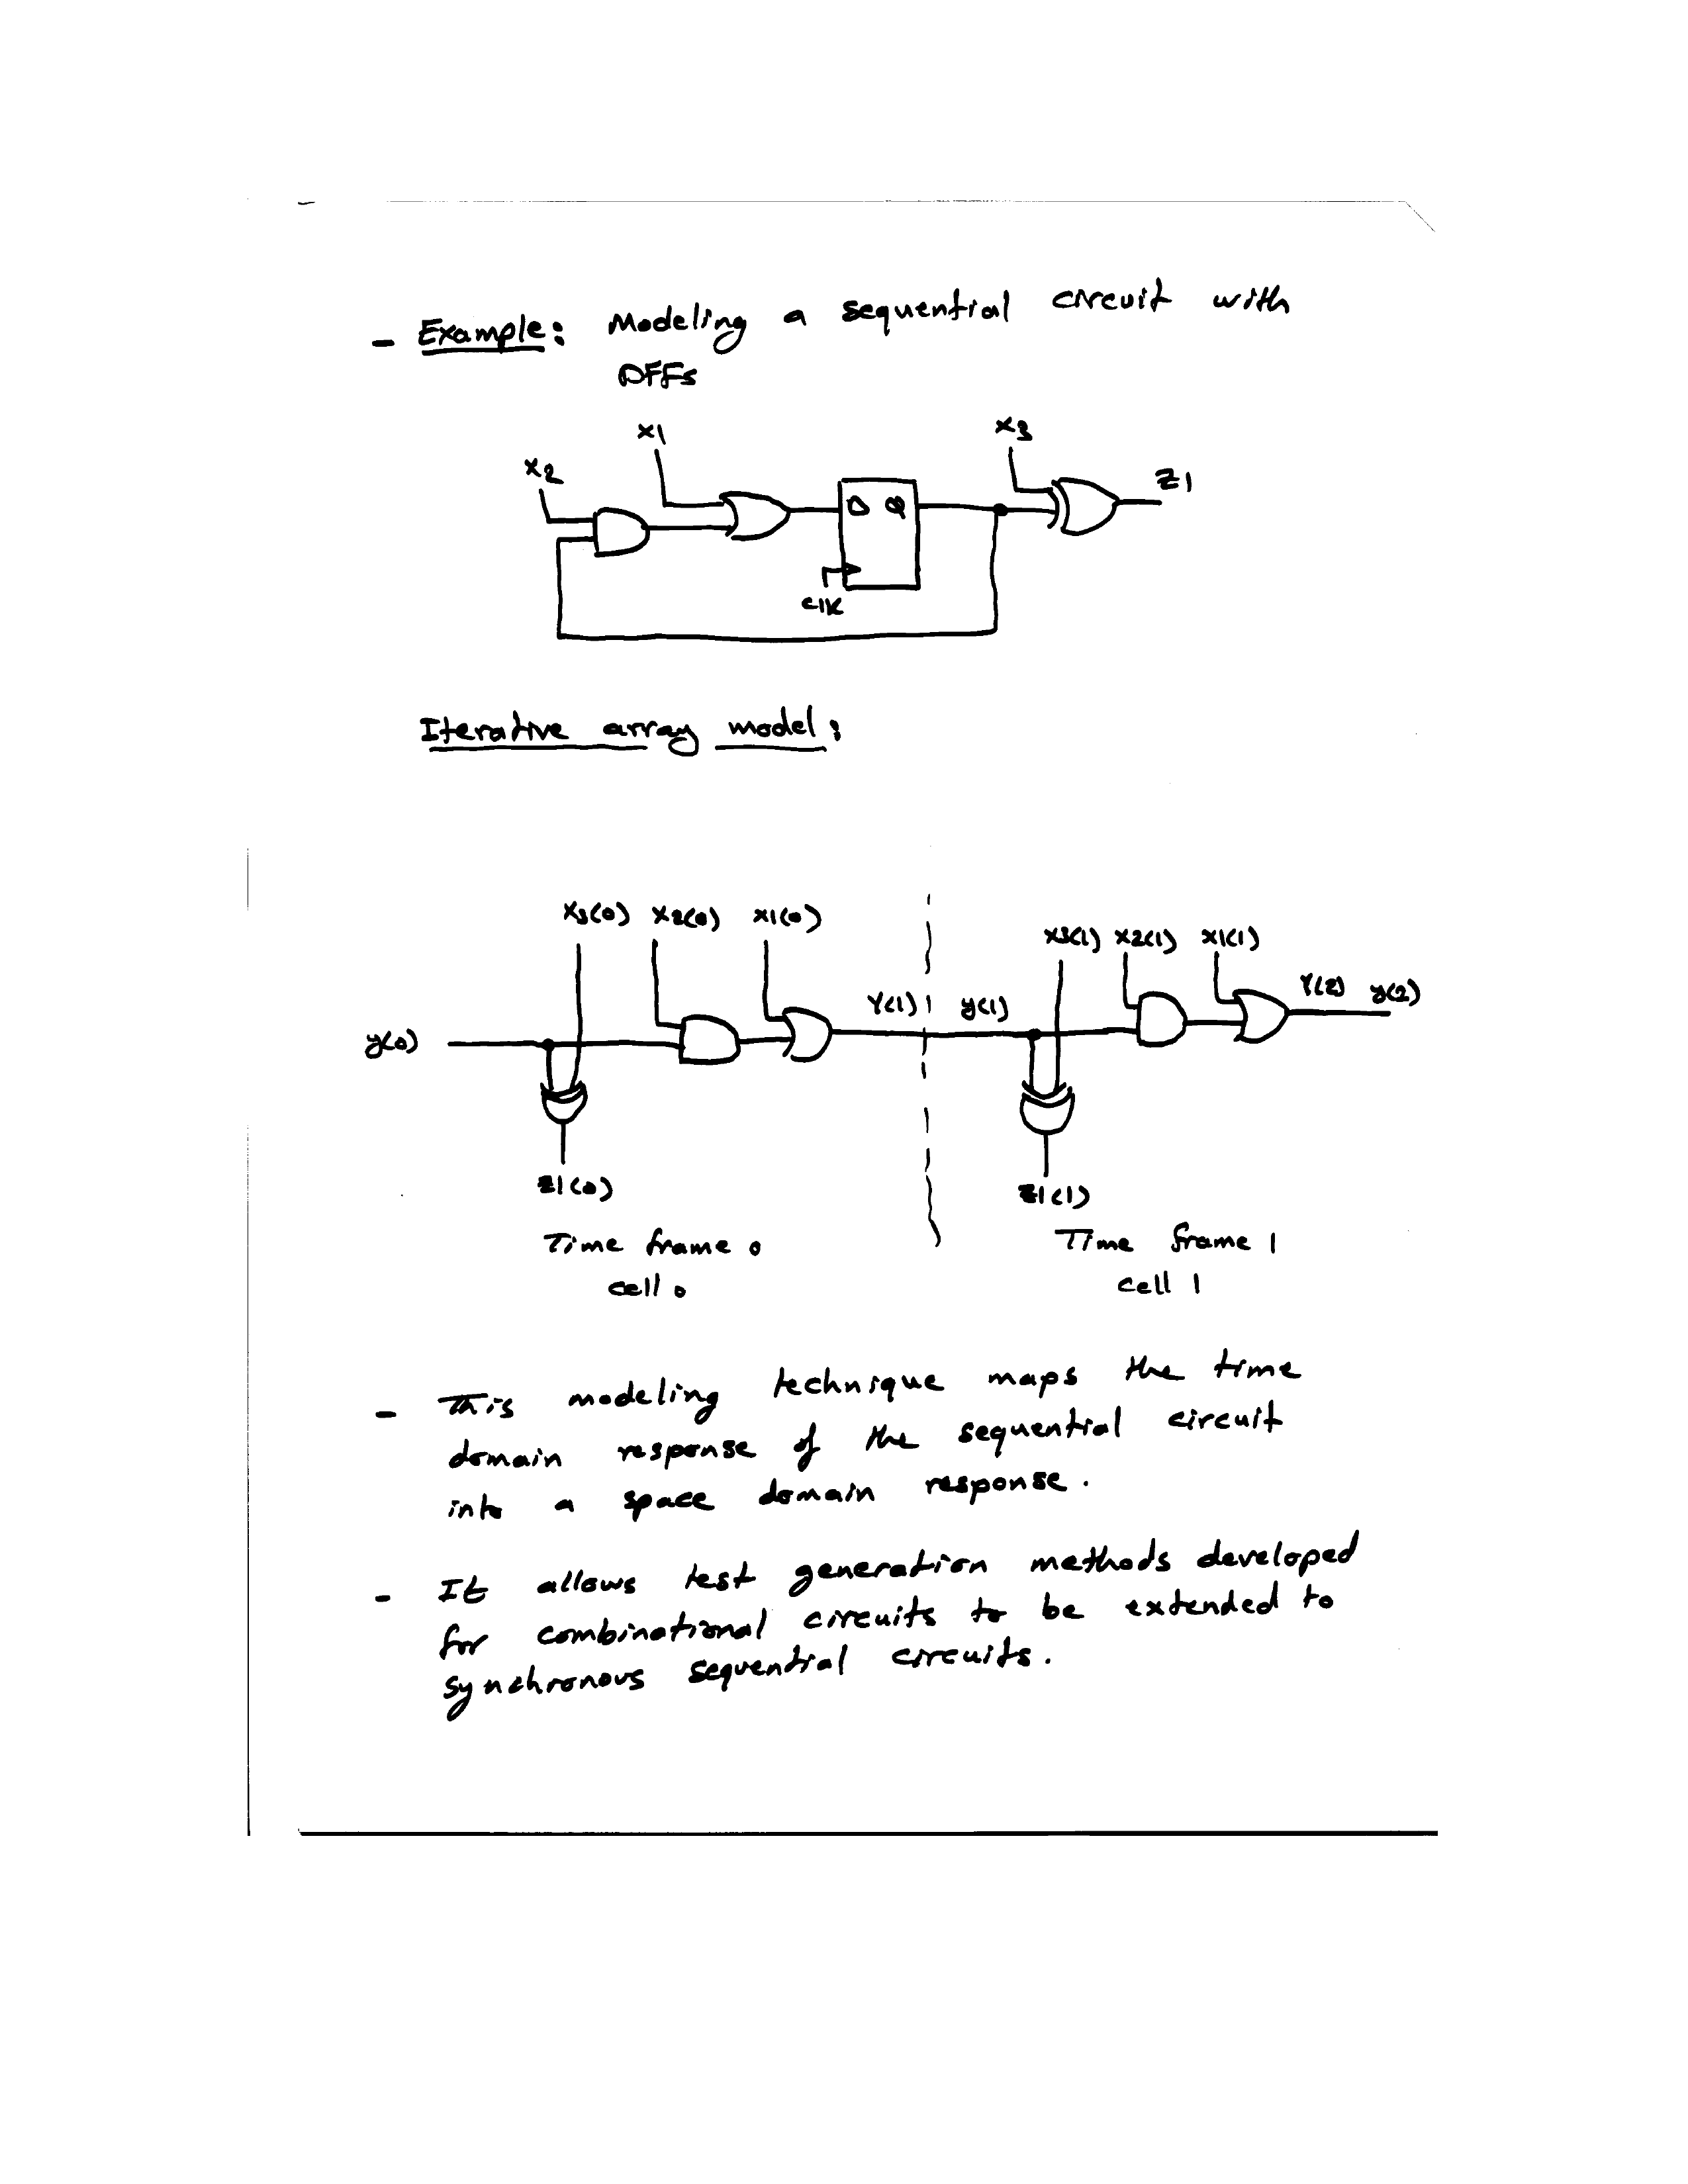 - Example: Modeling a sequential circuit with
DFFs
x1
x3
x2
z1
D Q
clk
Iterative array model:
x3(0) x2(0) x1(0)
x3(1) x2(1) x1(1)
y(0)
Y(1) y(1)
Y(2) y(2)
z1(0)
z1(1)
Time frame 0
Time frame 1
cell 0
cell 1
- This modeling technique maps the time
domain response of the sequential circuit
into a space domain response.
- It allows test generation methods developed
for combinational circuits to be extended to
synchronous sequential circuits.